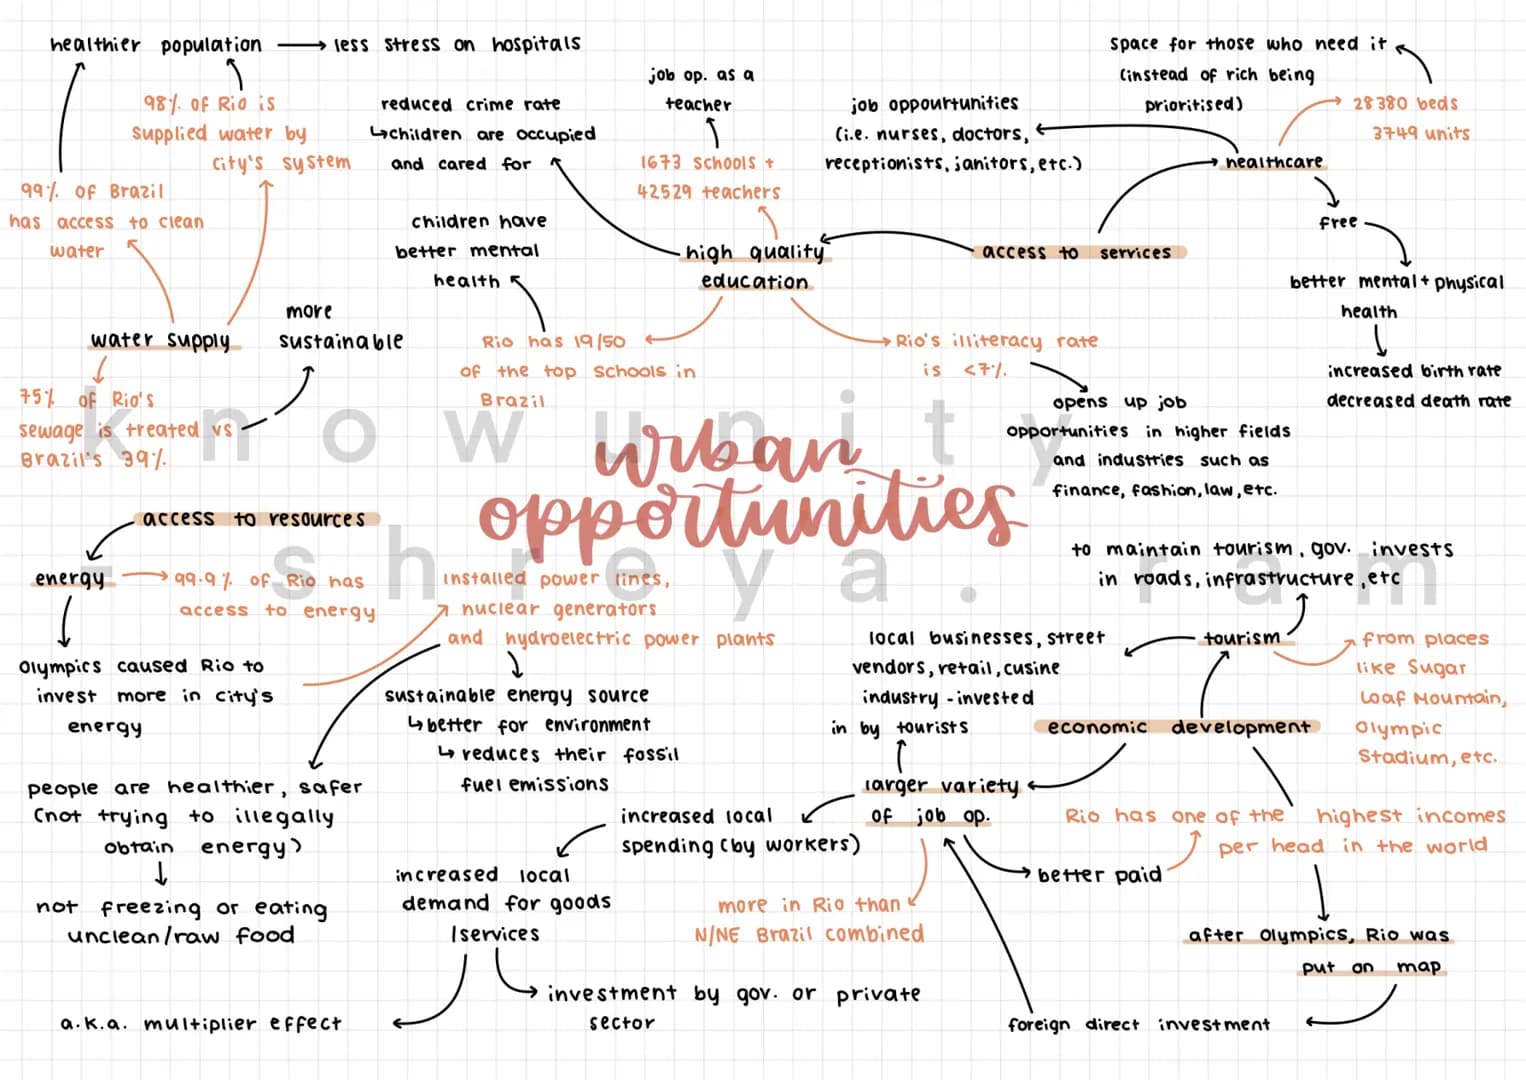 healthier population
less stress on hospitals
98% of Rio is
supplied water by
city's system
99% of Brazil
has access to clean
water
water supply
75% of Rio's
sewage is treated vs
Brazil's 39%.
more
sustainable
reduced crime rate
↳children are occupied
and cared for
children have
better mental
health
job op. as a
teacher
1673 schools +
42529 teachers
high quality
education
Rio has 19/50
of the top schools in
Brazil
Rio's illiteracy rate
is <7%.
opens up job
opportunities in higher fields
and industries such as
finance, fashion, law, etc.
access to services
job oppourtunities
(i.e. nurses, doctors,
receptionists, janitors, etc.)
healthcare
space for those who need it
(instead of rich being
prioritised)
28380 beds
3749 units
free
better mental + physical
health
increased birth rate
decreased death rate
knowunity
urban
opportunities
- shreya.ram
access to resources
energy
99.9% of Rio has
access to energy
Olympics caused Rio to
invest more in city's
energy
installed power lines,
nuclear generators
and hydroelectric power plants
sustainable energy source
↳better for environment
↳reduces their fossil
fuel emissions
people are healthier, safer
(not trying to illegally
obtain energy)
not freezing or eating
unclean/raw food
to maintain tourism, gov. invests
in roads, infrastructure, etc
tourism
from places
like Sugar
Loaf Mountain,
Olympic
Stadium, etc.
local businesses, street
vendors, retail, cusine
industry - invested
in by tourists
economic development
larger variety
of job op.
increased local
spending (by workers)
increased local
demand for goods
/services
a.k.a. multiplier effect
investment by gov. or private
sector
more in Rio than
N/NE Brazil combined
better paid
Rio has one of the highest incomes
per head in the world
after Olympics, Rio was
put on map
foreign direct investment